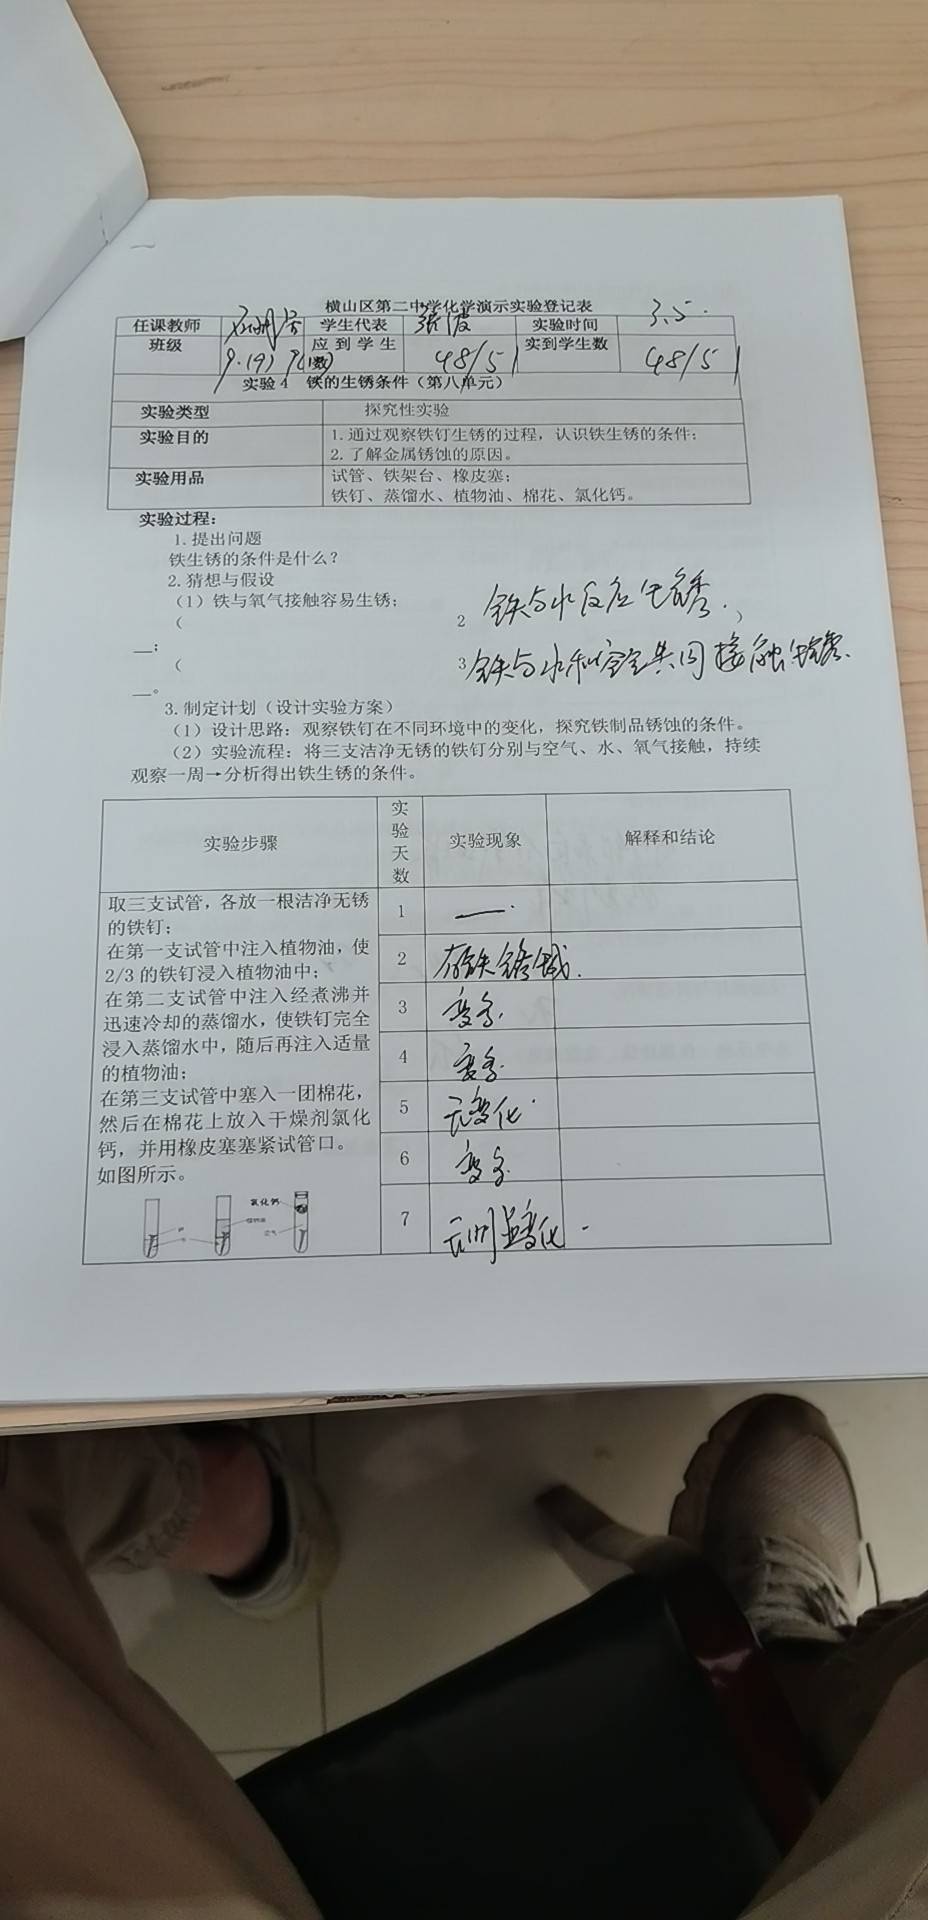 横山区第二中学化学演示实验登记表
任课教师 学生代表 实验时间 3.5.
班级 应到学生数 48/51 实到学生数 48/51
实验 4 铁的生锈条件（第八单元）
实验类型 探究性实验
实验目的 1.通过观察铁钉生锈的过程，认识铁生锈的条件；
2.了解金属锈蚀的原因。
实验用品 试管、铁架台、橡皮塞；
铁钉、蒸馏水、植物油、棉花、氯化钙。
实验过程：
1.提出问题
铁生锈的条件是什么？
2.猜想与假设
（1）铁与氧气接触容易生锈；
（ 2 铁与水反应生锈. ）
__；
（ 3 铁与水和空气共同接触生锈.
__。
3.制定计划（设计实验方案）
（1）设计思路：观察铁钉在不同环境中的变化，探究铁制品锈蚀的条件。
（2）实验流程：将三支洁净无锈的铁钉分别与空气、水、氧气接触，持续
观察一周→分析得出铁生锈的条件。
实验步骤 实验天数 实验现象 解释和结论
取三支试管，各放一根洁净无锈
的铁钉；
在第一支试管中注入植物油，使
2/3 的铁钉浸入植物油中；
在第二支试管中注入经煮沸并
迅速冷却的蒸馏水，使铁钉完全
浸入蒸馏水中，随后再注入适量
的植物油；
在第三支试管中塞入一团棉花，
然后在棉花上放入干燥剂氯化
钙，并用橡皮塞塞紧试管口。
如图所示。
氯化钙
1 —.
2
3 变多.
4 变多.
5 无变化.
6 变多.
7 无明显变化.